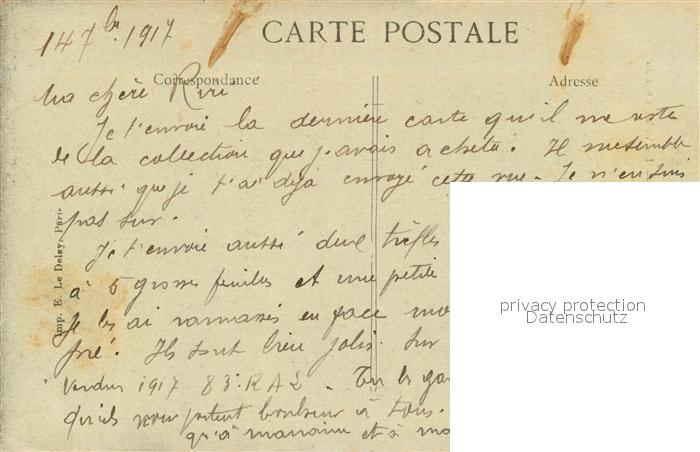 14 7bre 1917
CARTE POSTALE
Correspondance
Adresse
Ma chère Riri
Je t'envoie la dernière carte qu'il me reste
de la collection que j'avais acheté. Il me semble
aussi que je t'ai déjà envoyé cette vue. Je n'en suis
pas sur.
Je t'envoie aussi deux trèfles
à 5 grosses feuilles et une petite
Je les ai ramassés en face
pré. Ils sont bien jolis. Sur
Verdun 1917 83e R A L. Tu les
qu'ils nous portent bonheur à tous.
qu'à maman et à
Imp. E. Le Deley, Paris
privacy protection
Datenschutz